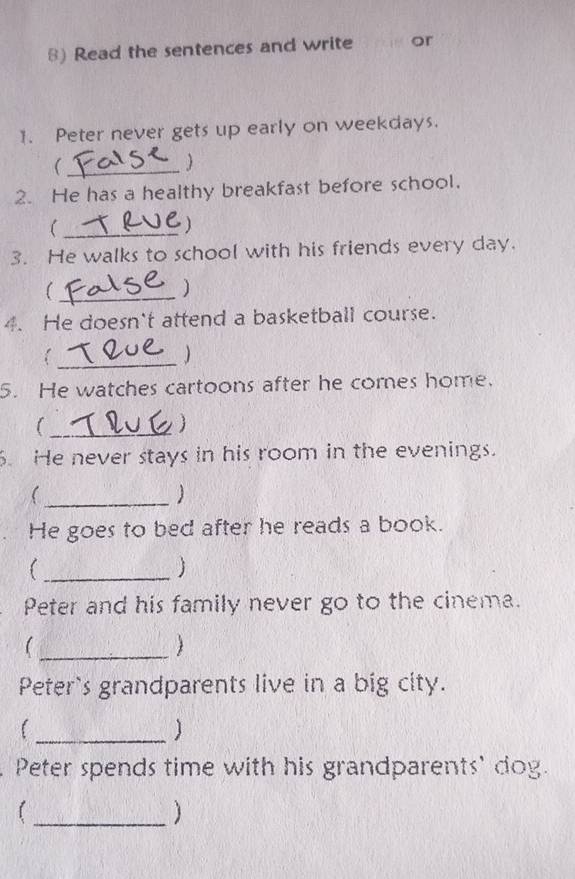 B) Read the sentences and write or
1. Peter never gets up early on weekdays.
( False )
2. He has a healthy breakfast before school.
( TRUe )
3. He walks to school with his friends every day.
( False )
4. He doesn't attend a basketball course.
( TRUe )
5. He watches cartoons after he comes home.
( TRUE )
6. He never stays in his room in the evenings.
(__________)
. He goes to bed after he reads a book.
(__________)
Peter and his family never go to the cinema.
(__________)
Peter`s grandparents live in a big city.
(__________)
. Peter spends time with his grandparents' dog.
(__________)